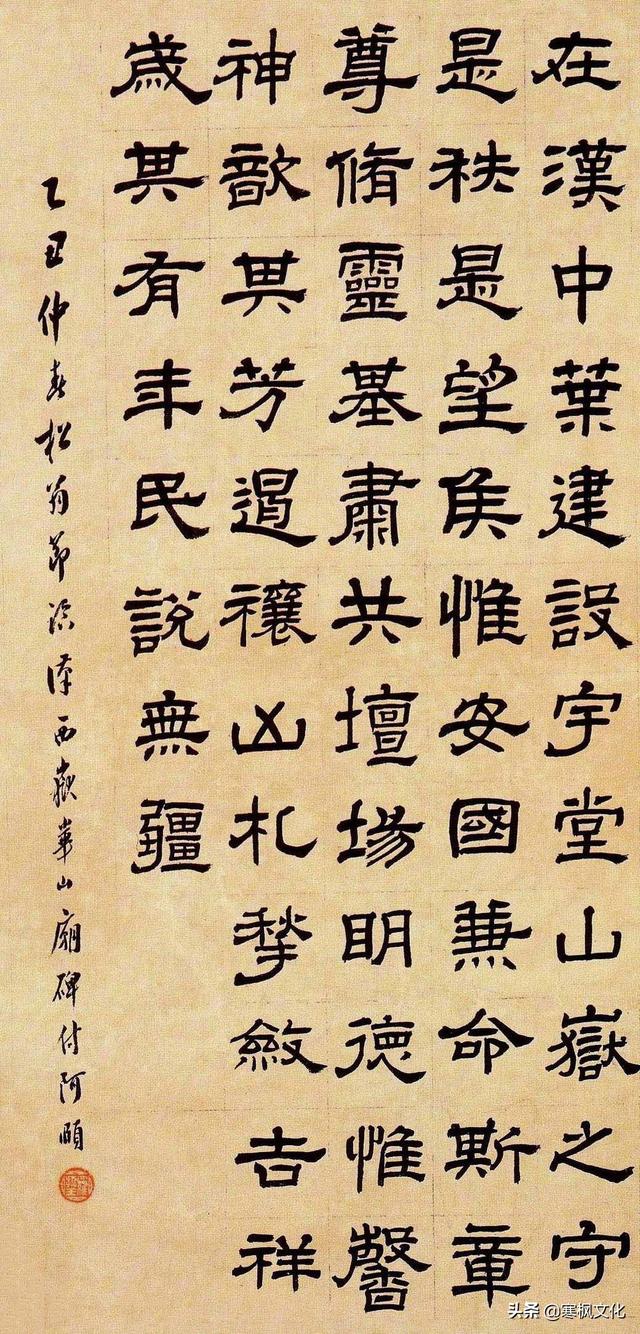 在漢中葉建設宇堂山嶽之守
是秩是望侯惟安國兼命斯章
尊脩靈基肅共壇場明德惟馨
神歆其芳遏禳凶札揫斂吉祥
歲其有年民說無疆
乙丑仲春松翁節臨漢西嶽華山廟碑付阿頤
头条 @寒枫文化